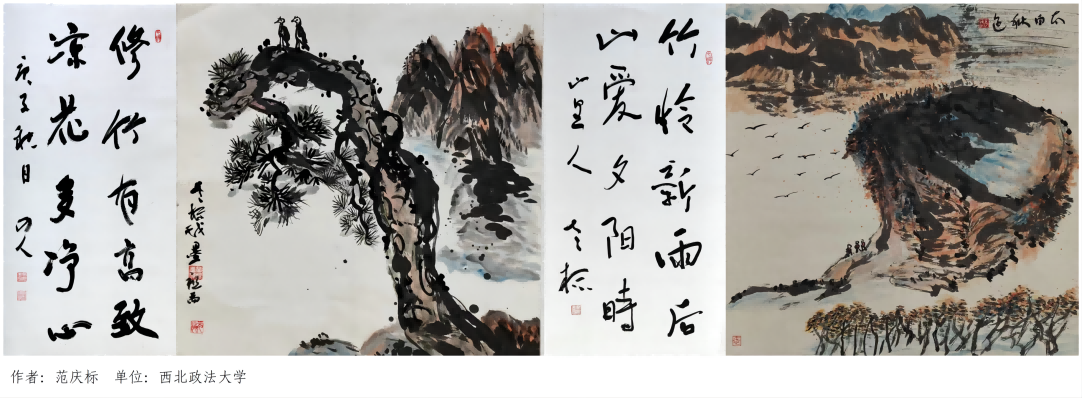 修竹有高致
凉花多净心
庚子秋月
竹怜新雨后
山爱夕阳時
山里人
作者：范庆标 单位：西北政法大学